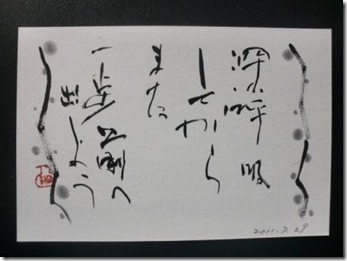 深呼吸
してから
また
一歩踏み
出そう
2011.7.29